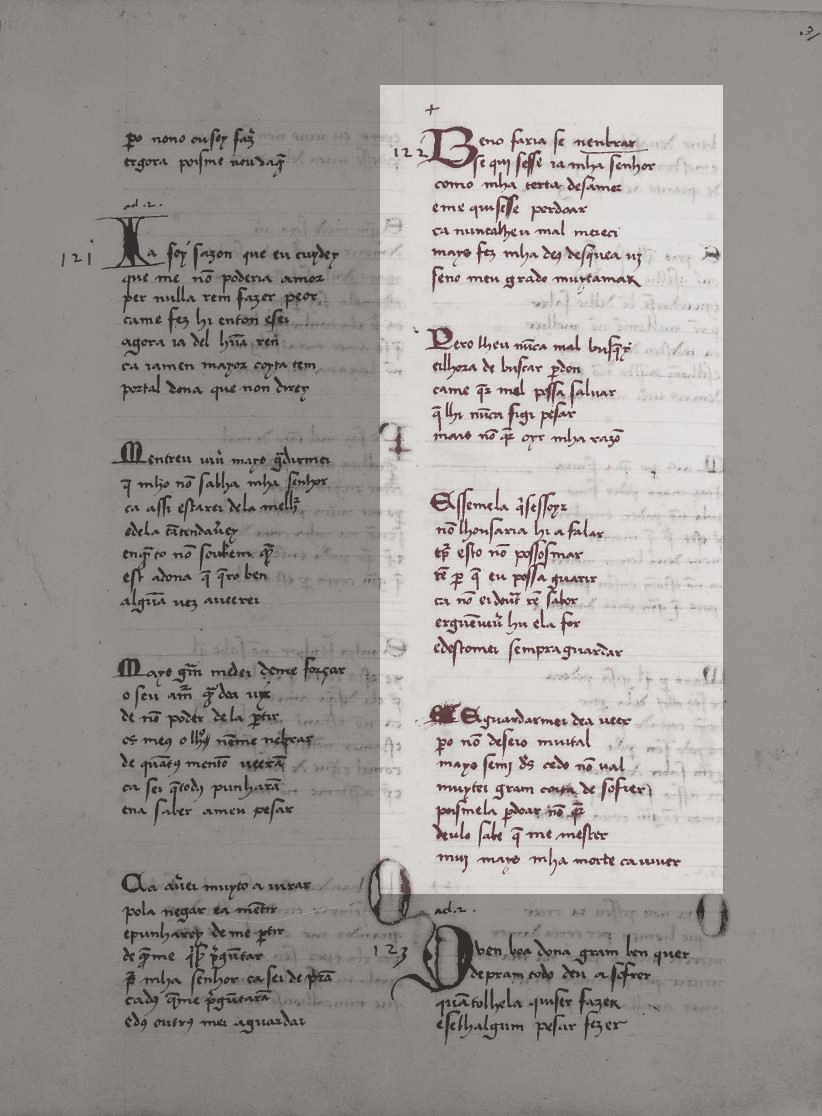 ꝑo nono ousey faz̃
ergora poisme nẽu daq̃
ad .2.
121 Ja foy sazon que eu cuydey
que me nõ poderia amor
per nulla rem fazer peor
came fez hi enton esei
agora ia del hũa ren
ca iamen mayor coyta tem
portal dona que non direy
Mentreu
q̃ mho nõ sabha mha senhor
ca assi estarei dela melhʳ
edela
enqᵃto nõ souƀem qʳ̃
est adona q̃ q̃ro ben
algũa uez aueerei
Mayo med ei deme forçar
o seu am̃
de nõ poder dela ꝑtir
os meus olhꝯ nẽme nẽbrar
de quãtꝯ mentõ ueerã
ca sei q̃todꝯ punharã
ena saber ameu pesar
Ca auei muyto a uirar
pola negar ea mẽtir
epunharey deme ꝑtir
de q̃me
mha senhor ca sei de prã
cadꝯ q̃me ꝑgũtarã
edꝯ outrꝯ mei aguardar
122 Beno faria se nenbrar
se quisesse ia mha senhor
como mha torta desamor
eme quisesse perdoar
ca nuncalheu mal mereci
mayo fez mha deꝯ desquea ui
seno meu grado muytamar
Pero lheu nũca mal busq̃y
eilhora de buscar ꝑdon
came qʳ̃ mal possa saluar
q̃ lhi nũca figi pesar
mais nõ qʳ̃ oyr mha razõ
Essemela q̃sessoyr
nõ lhousaria hi a falar
esto nõ possosmar
rẽ ꝑ q̃ eu possa guarir
ca nõ ei dout̃ rẽ sabor
ergueeu hu ela for
edestomei sempraguardar
Eaguardarmei dea ueer
ꝑo nõ deseio muital
mayo semi ds̃ cedo nõ ual
muytei gram coita de sofrer
poismela ꝑdoar nõ qʳ̃
deulo sabe q̃ me mester
mui mays mha morte ca uiuer
ad.2.
123 Quen boa dona gram ben quer
de pram todo deu a sofrer
quãtolhela quiser fazer
esethalgum pesar fezer